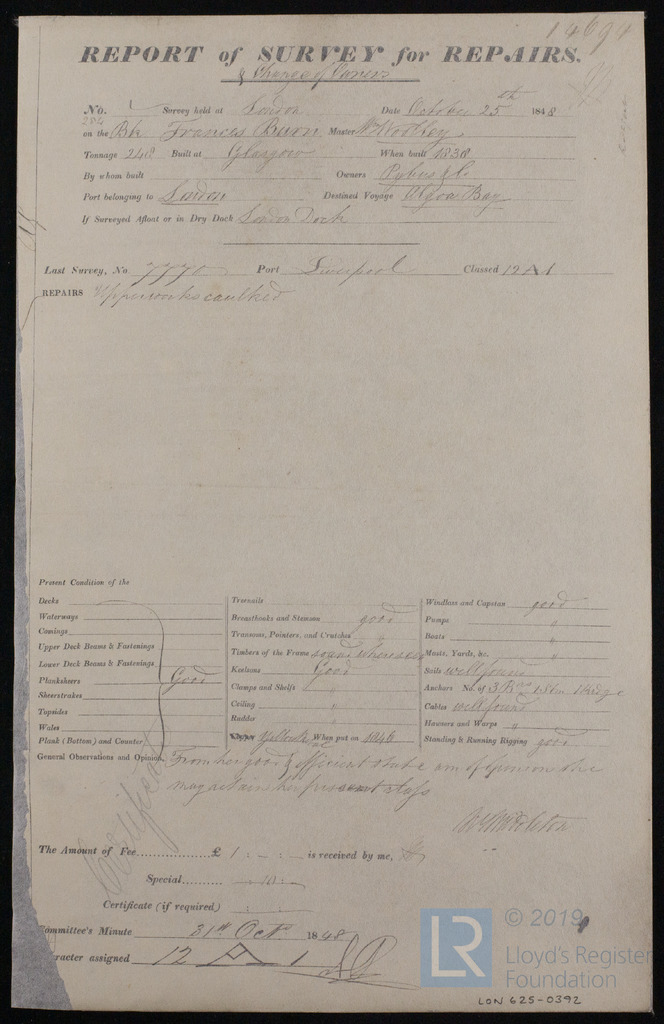 14694
REPORT of SURVEY for REPAIRS.
& Change of Owners
No. Survey held at London Date October 25th 1848
284
on the Bk Frances Burn Master Wm Woolley
Tonnage 248 Built at Glasgow When built 1838
By whom built Owners Pybus & Co
Port belonging to London Destined Voyage Algoa Bay
If Surveyed Afloat or in Dry Dock London Dock
Last Survey, No. 7770 Port Liverpool Classed 12 A 1
REPAIRS Upperworks caulked
Present Condition of the
Decks
Waterways
Comings
Upper Deck Beams & Fastenings
Lower Deck Beams & Fastenings
Planksheers Good
Sheerstrakes
Topsides
Wales
Plank (Bottom) and Counter
Treenails
Breasthooks and Stemson good
Transoms, Pointers, and Crutches "
Timbers of the Frame sound where seen
Keelsons Good
Clamps and Shelfs "
Ceiling "
Rudder "
Yellow Metal When put on 1846
Windlass and Capstan good
Pumps "
Boats "
Masts, Yards, &c. "
Sails well found
Anchors No. of 3 Brs 1 Stm 1 Kedge
Cables well found
Hawsers and Warps "
Standing & Running Rigging good
General Observations and Opinion, From her good & efficient state am of opinion she
may retain her present class
The Amount of Fee............... £ 1 : - : - is received by me,
Special......... - 10 : -
Certificate (if required) :
Certificate
Committee's Minute 31st Oct 1848
Character assigned 12 A 1
LR
© 2019
Lloyd's Register
Foundation
LON 625-0392